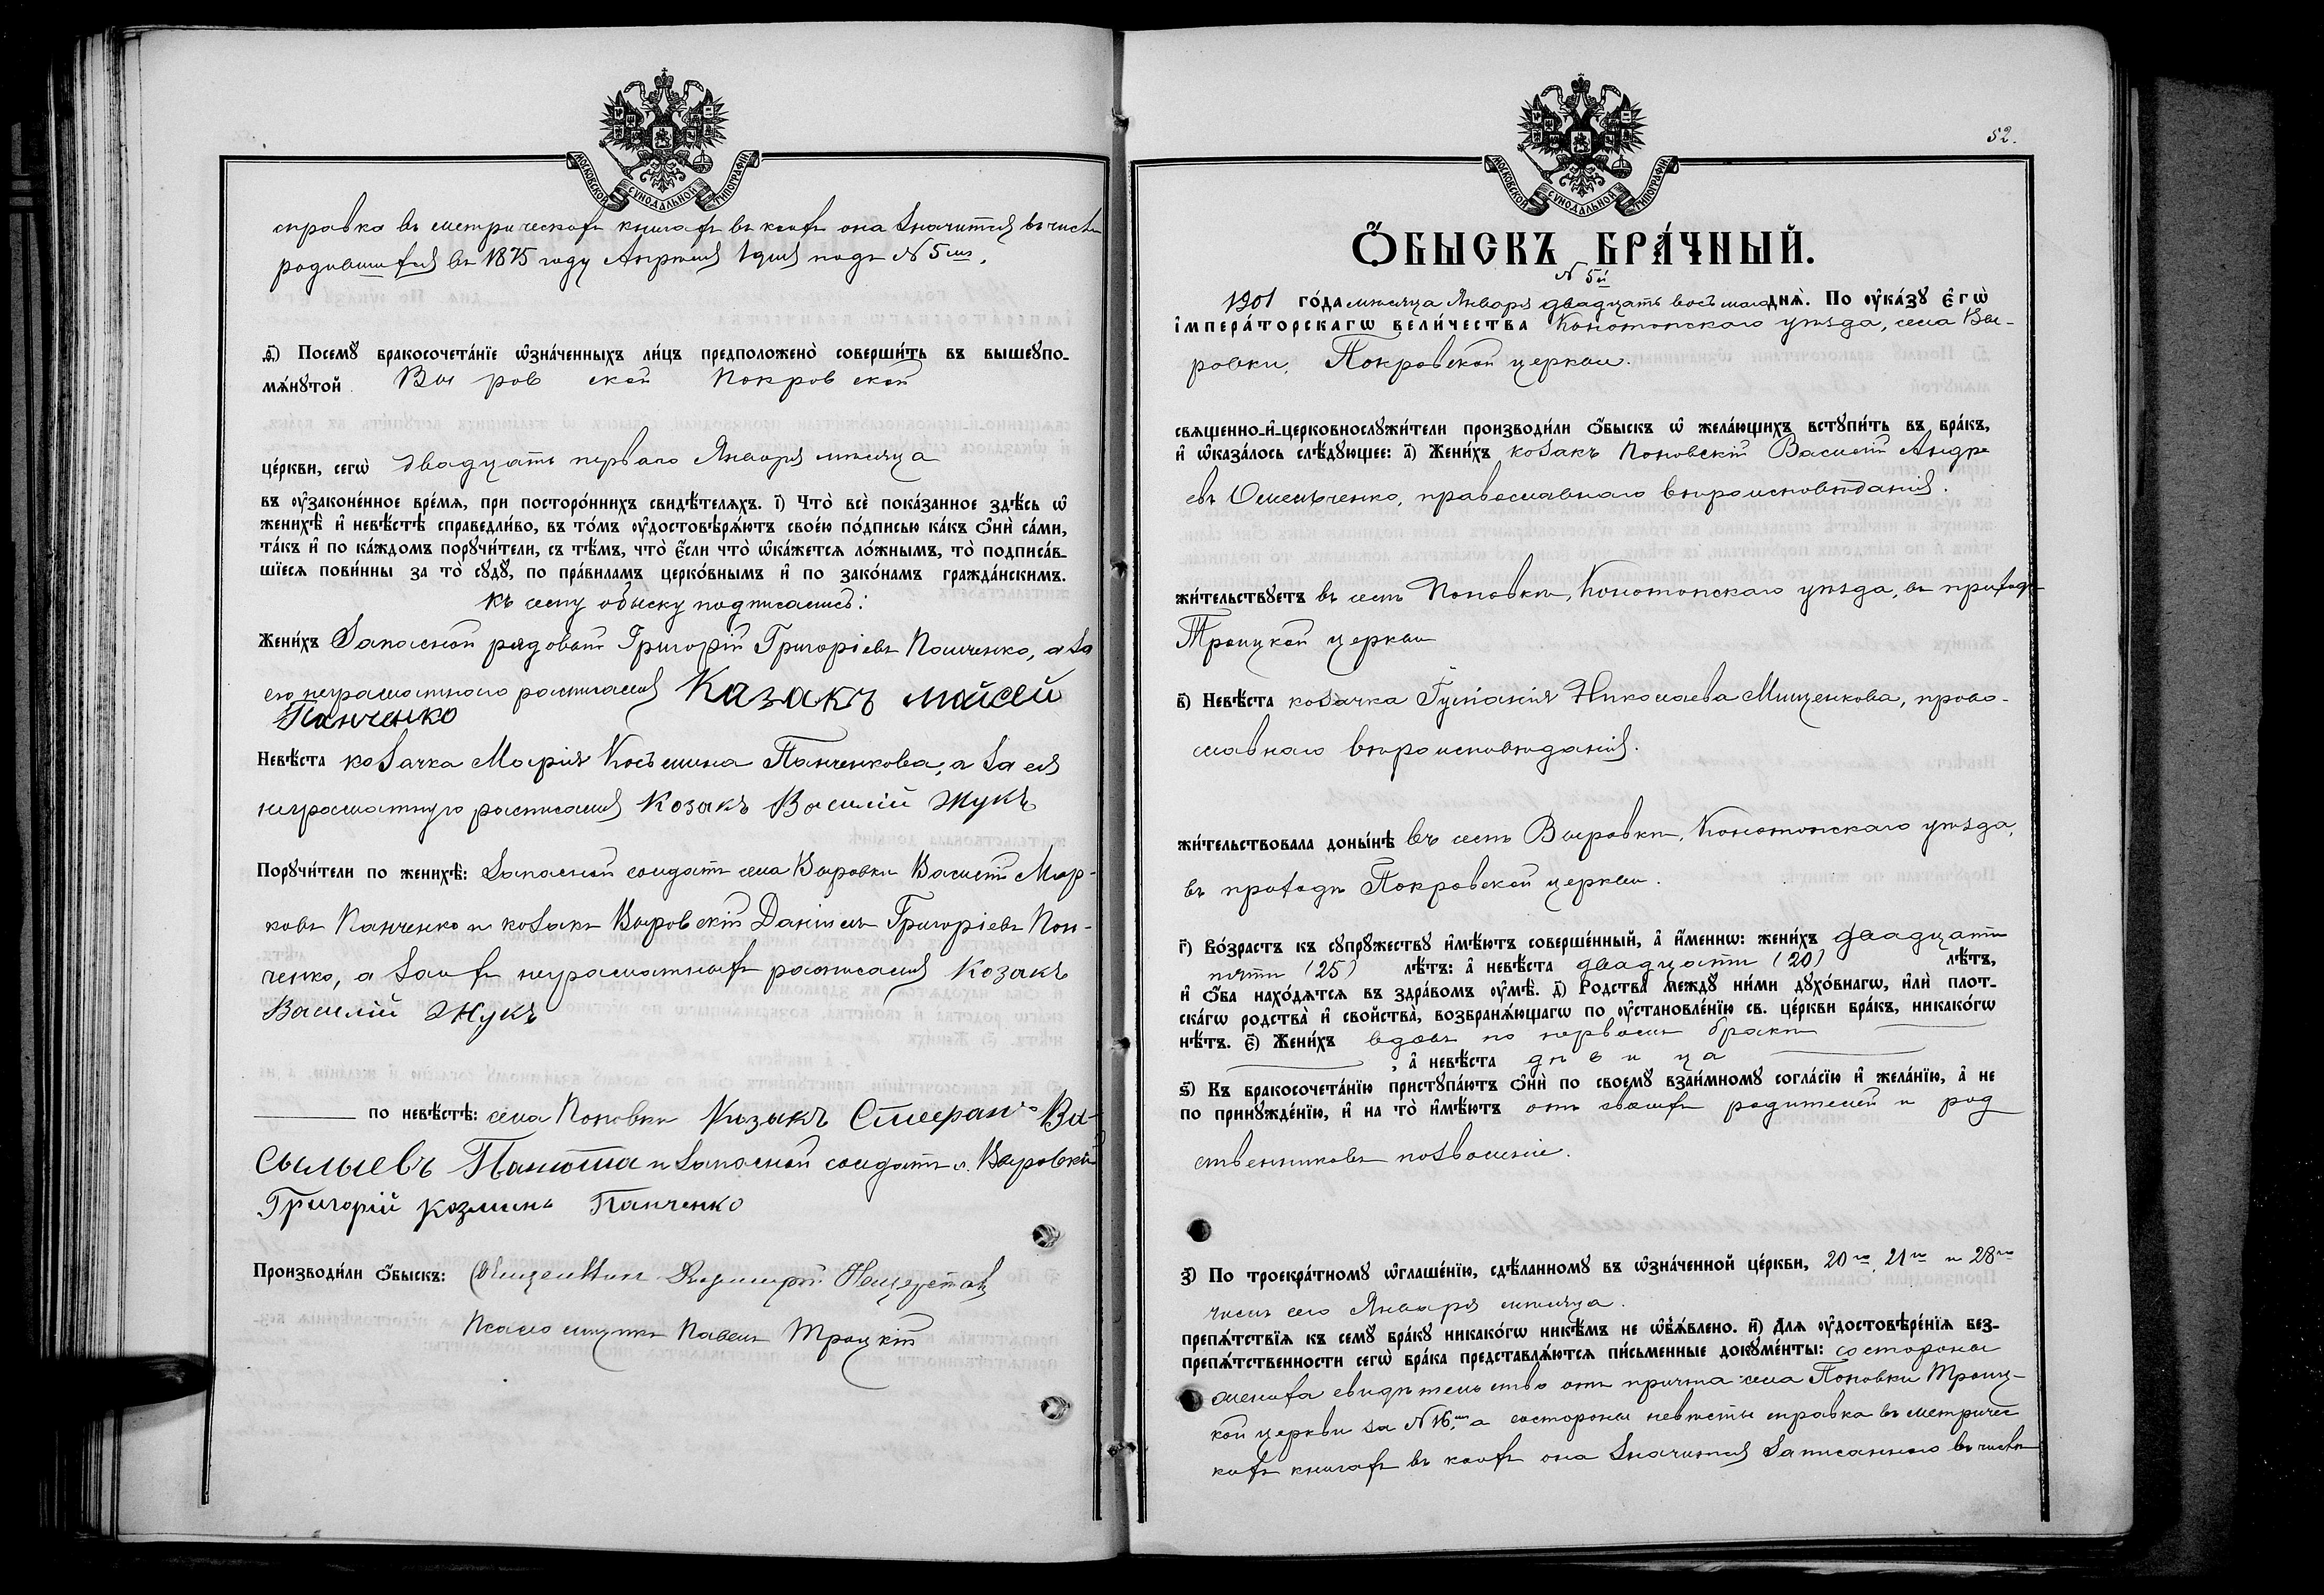 МОСКОВСКОЙ СѴНОДАЛЬНОЙ ТИПОГРАФІИ
справка въ метрическихъ книгахъ въ коихъ она значится въ числѣ
родившихся въ 1875 году Апрѣля 1 дня подъ № 5мъ.
ѳ҃) Посемꙋ̀ бракосочета́нїе ѡ҆зна́ченныхъ ли́цъ предположено̀ соверши́ть въ вышеꙋпо-
мѧ́нꙋтой Выровской Покровской
це́ркви, сегѡ̀ двадцать перваго Января мѣсяца
въ ᲂу҆законе́нное вре́мѧ, при посторо́ннихъ свидѣ́телѧхъ. і҃) Что̀ всѐ пока́занное здѣ́сь ѡ҆
женихѣ̀ и҆ невѣ́стѣ справедли́во, въ то́мъ ᲂу҆достовѣрѧ́ютъ свое́ю по́дписью ка́къ ѻ҆нѝ са́ми,
та́къ и҆ по ка́ждомъ порꙋчи́тели, съ тѣ́мъ, что̀ є҆́сли что̀ ѡ҆ка́жетсѧ ло́жнымъ, то̀ подписа́в-
шїесѧ пови́нны за то̀ сꙋдꙋ̀, по пра́виламъ церко́внымъ и҆ по зако́намъ гражда́нскимъ.
Къ сему обыску подписались:
Жени́хъ Запасной рядовой Григорій Григоріевъ Панченко, а за
его неграмотного росписался Казакъ Мойсей
Панченко
Невѣ́ста козачка Марія Косьмина Панченкова, а за ея
неграмотную росписался Козакъ Василій Жукъ
Порꙋчи́тели по женихѣ̀: Запасной солдатъ села Выровки Василій Мар-
ковъ Панченко и козакъ Выровскій Даніилъ Григоріевъ Пан-
ченко, а за ихъ неграмотныхъ росписался Козакъ
Василій Жукъ
по невѣ́стѣ: села Поповки Казакъ Стефанъ Ва-
сылыевъ Панюта и запасной солдатъ с. Выровки
Григорій Козминъ Панченко
Производи́ли ѻ҆́быскъ: Священникъ
Псаломщикъ Павелъ Троцкій
52.
МОСКОВСКОЙ СѴНОДАЛЬНОЙ ТИПОГРАФІИ
Ѻ҆́БЫСКЪ БРА́ЧНЫЙ.
№ 5й
1901 го́да мѣсяца Января двадцать восьмаго днѧ̀. По ᲂу҆ка́зꙋ є҆гѡ̀
і҆мпера́торскагѡ вели́чества Конотопскаго уѣзда, села Вы-
ровки, Покровской церкви.
свѧщенно-и҆-церковнослꙋжи́тели производи́ли ѻ҆́быскъ ѡ҆ жела́ющихъ встꙋпи́ть въ бра́къ,
и҆ ѡ҆каза́лось слѣ́дꙋющее: а҃) Жени́хъ козакъ Поповскій Василій Андре
евъ Омельченко, православнаго вѣроисповѣданія.
жи́тельствꙋетъ въ селѣ Поповкѣ, Конотопскаго уѣзда, въ приходѣ
Троицкой церкви
в҃) Невѣ́ста козачка Гуліанія Николаева Мищенкова, право-
славнаго вѣроисповѣданія.
жи́тельствовала доны́нѣ въ селѣ Выровкѣ, Конотопскаго уѣзда,
въ приходѣ Покровской церкви.
г҃) Во́зрастъ къ сꙋпрꙋ́жествꙋ и҆мѣ́ютъ соверше́нный, а҆ и҆́меннѡ: жени́хъ двадцати
пяти (25) лѣ́тъ: а҆ невѣ́ста двадцати (20) лѣ́тъ,
и҆ ѻ҆́ба нахо́дѧтсѧ въ здра́вомъ ᲂу҆мѣ̀. д҃) Родства̀ междꙋ ни́ми дꙋхо́внагѡ, и҆лѝ плот-
ска́гѡ родства̀ и҆ сво́йства, возбранѧ́ющагѡ по ᲂу҆становле́нїю св. це́ркви бра́къ, никако́гѡ
нѣ́тъ. є҃) Жени́хъ вдовъ по первомъ бракѣ
, а҆ невѣ́ста дѣвица
ѕ҃) Къ бракосочета́нїю пристꙋпа́ютъ ѻ҆нѝ по своемꙋ̀ взаи́мномꙋ согла́сїю и҆ жела́нїю, а҆ не
по принꙋжде́нїю, и҆ на то̀ и҆мѣ́ютъ отъ своихъ родителей и род
ственниковъ позволеніе.
з҃) По троекра́тномꙋ ѡ҆глаше́нїю, сдѣ́ланномꙋ въ ѡ҆зна́ченной це́ркви, 20го, 21го и 28го
чиселъ сего Января мѣсяца.
препѧ́тствїѧ къ семꙋ̀ бра́кꙋ никако́гѡ никѣ́мъ не ѡ҆б̾ѧ́влено. и҃) Длѧ ᲂу҆достовѣре́нїѧ без-
препѧ́тственности сегѡ̀ бра́ка представлѧ́ютсѧ пи́сьменные докꙋме́нты: со стороны
жениха свидѣтельство отъ причта села Поповки Троиц-
кой церкви за № 16мъ, а со стороны невѣсты справка въ метричес
кихъ книгахъ въ коихъ она значится записанною въ числѣ